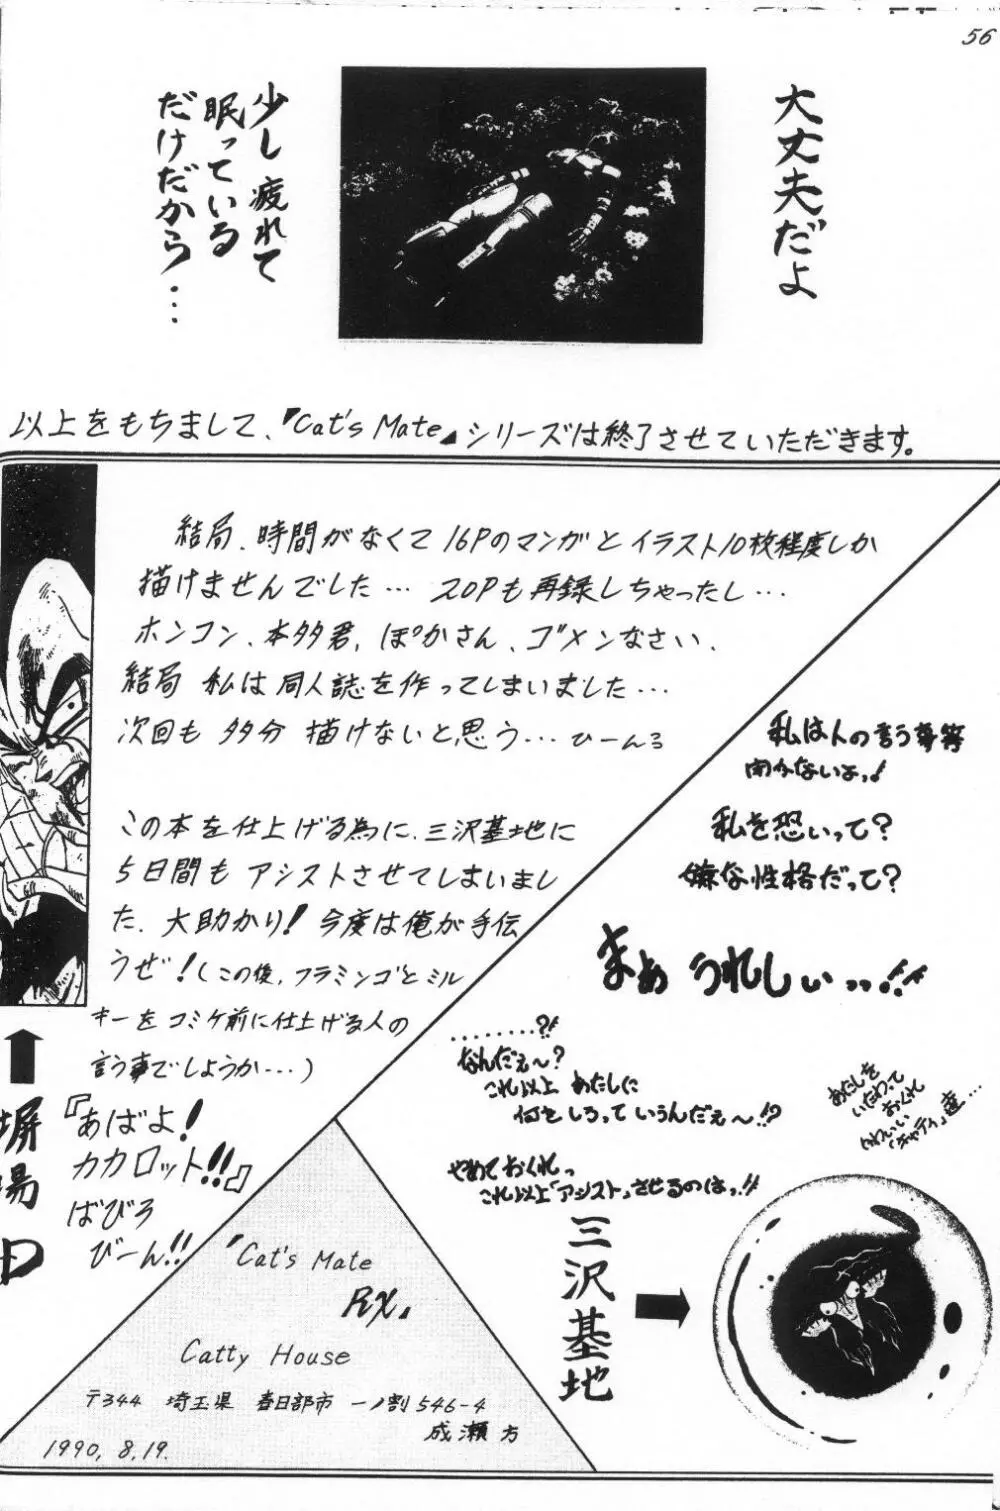 56
大丈夫だよ
少し疲れて
眠っている
だけだから・・・
以上をもちまして、『Cat's Mate』シリーズは終了させていただきます。
結局、時間がなくて16Pのマンガとイラスト10枚程度しか
描けませんでした… 20Pも再録しちゃったし…
ホンコン、本多君、ぽかさん、ゴメンなさい、
結局 私は同人誌を作ってしまいました…
次回も 多分 描けないと思う… ひーんろ
この本を仕上げる為に、三沢基地に
5日間も アシストさせてしまいまし
た、大助かり! 今度は俺が手伝
うぜ!(この後、フラミンゴとミル
キーをコミケ前に仕上げる人の
言う事でしようか…)
『あばよ!
カカロット!!』
ばびろ
びーん!!
私は人の言う事等
聞かないよっ!
私を恐いって?
嫌な性格だって?
まぁ うれしぃっ…!!
………?!
なんだぇ〜?
これ以上 あたしに
何をしろって いうんだぇ〜!?
やめておくれっ
これ以上「アシスト」させるのはっ!!
あたしを
いたわって
おくれ
かわいい
「キャティ」達…
三沢基地
『Cat's Mate
RX』
Catty House
〒344 埼玉県 春日部市 一ノ割546-4
成瀬 方
1990, 8, 19.